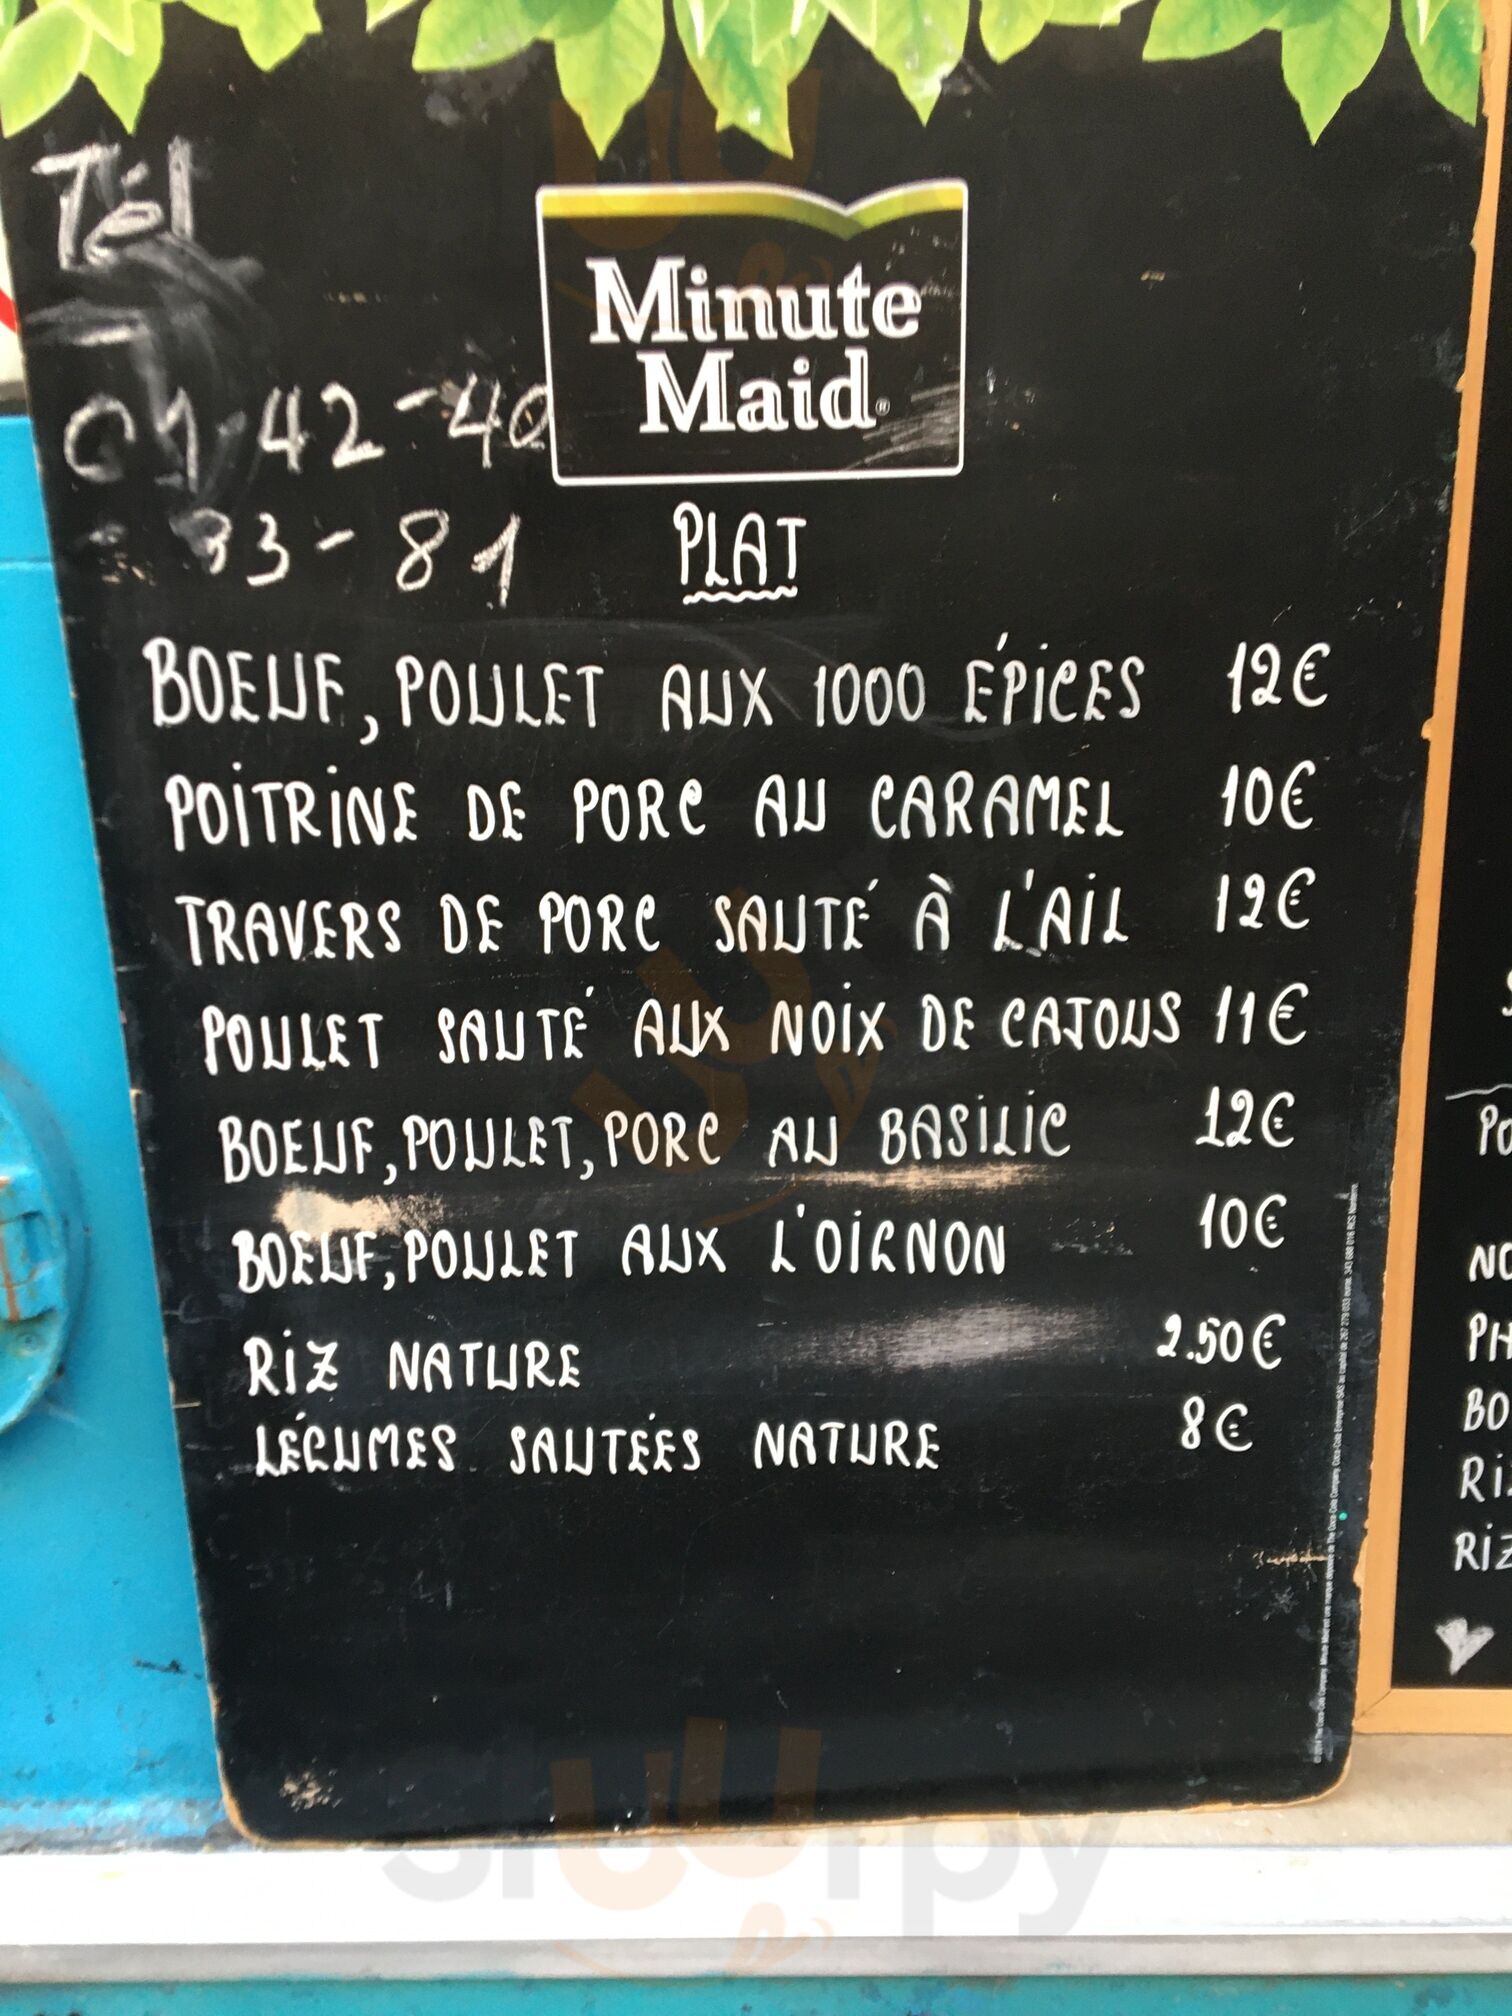 Tél
Minute
Maid
01-42-40
33-81
PLAT
BOEUF, POULET AUX 1000 ÉPICES 12€
POITRINE DE PORC AU CARAMEL 10€
TRAVERS DE PORC SAUTÉ À L'AIL 12€
POULET SAUTÉ AUX NOIX DE CAJOUS 11€
BOEUF, POULET, PORC AU BASILIC 12€
BOEUF, POULET AUX L'OIGNON 10€
RIZ NATURE 2.50€
LÉGUMES SAUTÉES NATURE 8€
PO
NO
PH
BO
RIZ
sluurpy